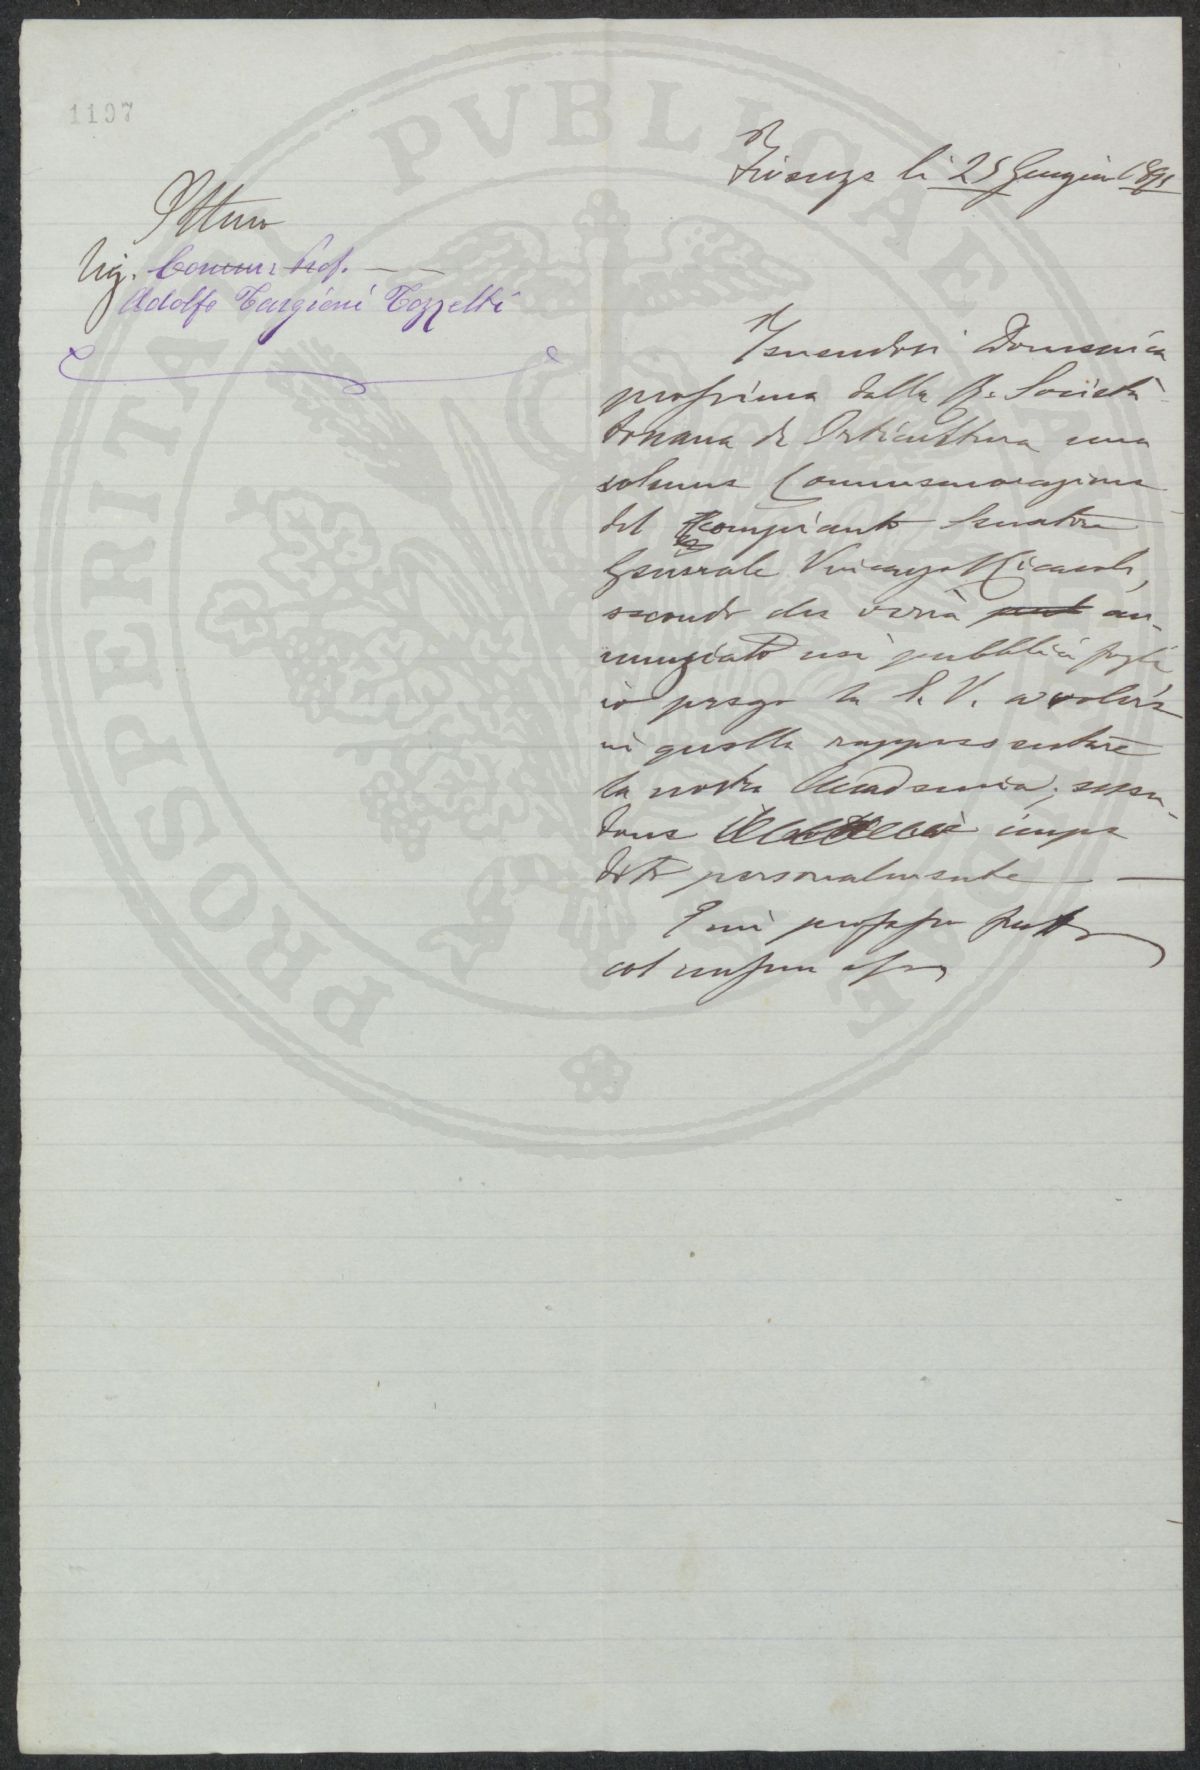 1197
Firenze li 25 Giugno 1891
Ill.mo
Sig. Comm. Prof.
Adolfo Targioni Tozzetti
Tenendosi Domenica
prossima dalla R. Società
toscana di Orticultura una
solenne Commemorazione
del compianto Senatore
Generale Vincenzo Ricasoli,
secondo che verrà an-
nunziato nei pubblici fogli
io prego la S. V. a volere
in quella rappresentare
la nostra Accademia; essen-
done impe
dito personalmente
E mi professo
col
PROSPERITATI PVBLICAE